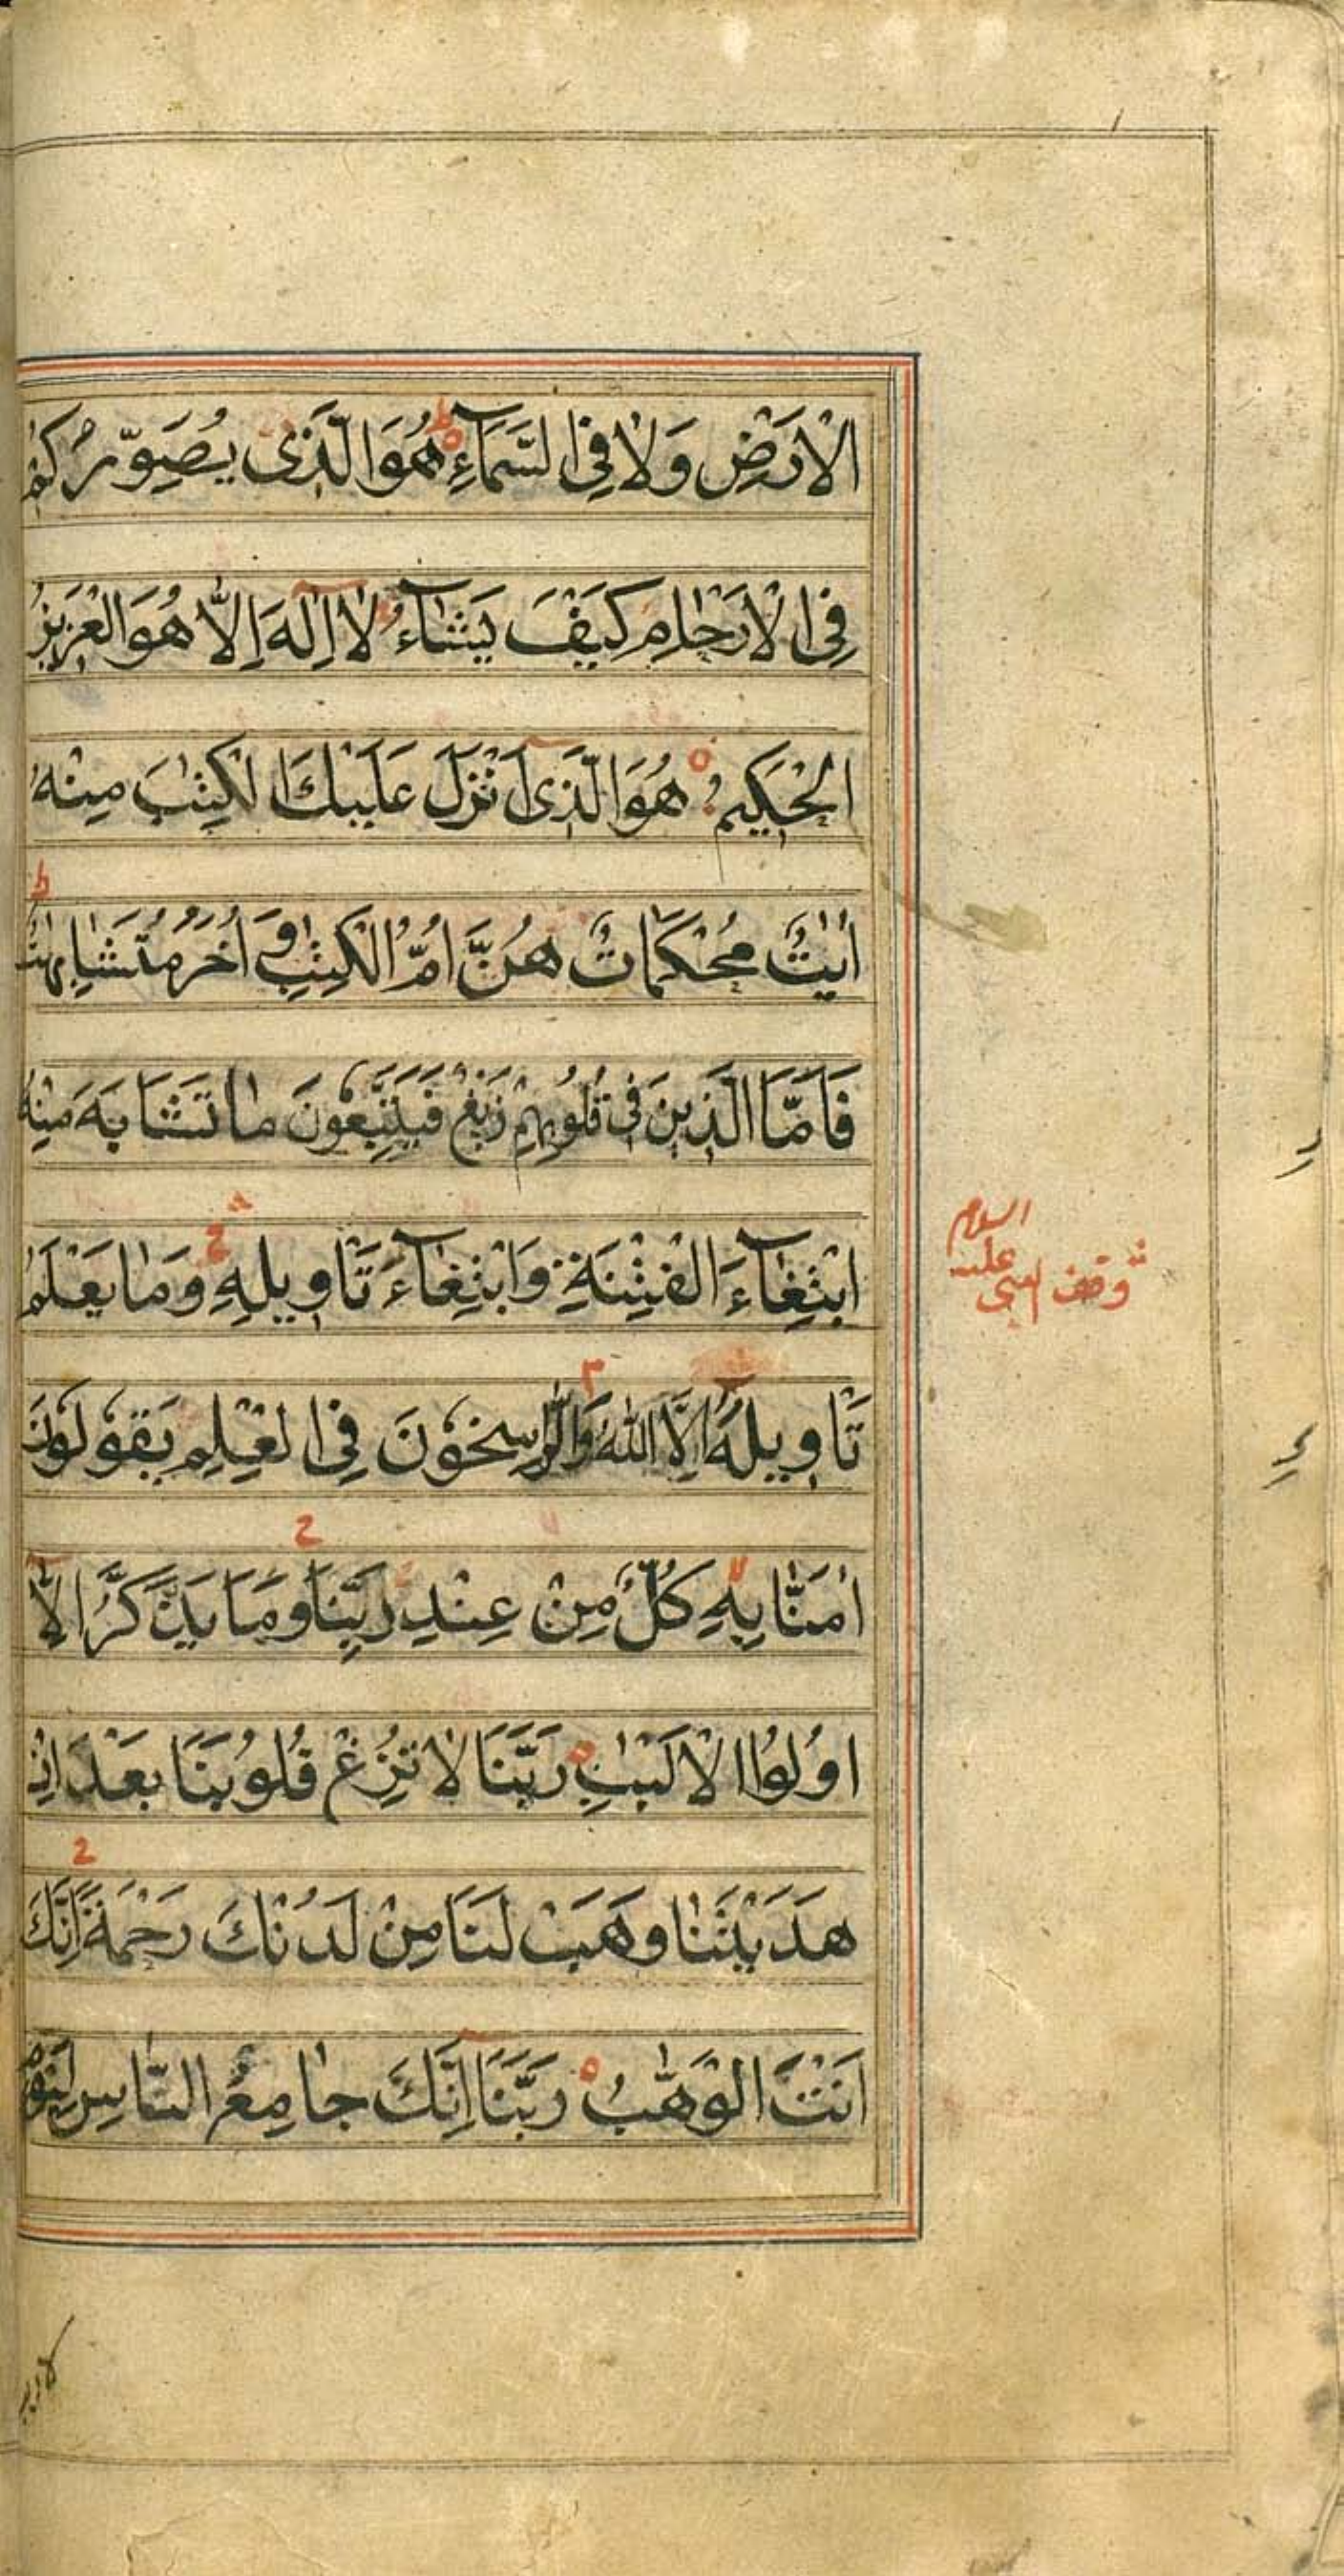 الْاَرْضِ وَلَا فِی السَّمَآءِ هُوَ الَّذِی یُصَوِّرُكُمْ
فِی الْاَرْحَامِ كَیْفَ یَشَآءُ لَا اِلٰهَ اِلَّا هُوَ الْعَزِیْزُ
الْحَكِیْمُ هُوَ الَّذِیْ اَنْزَلَ عَلَیْكَ الْكِتٰبَ مِنْهُ
اٰیٰتٌ مُحْكَمَاتٌ هُنَّ اُمُّ الْكِتٰبِ وَ اُخَرُ مُتَشَابِهَاتٌ ط
فَاَمَّا الَّذِیْنَ فِی قُلُوْبِهِمْ زَیْغٌ فَیَتَّبِعُوْنَ مَا تَشَابَهَ مِنْهُ
ابْتِغَآءَ الْفِتْنَةِ وَابْتِغَآءَ تَاْوِیْلِهِ وَمَا یَعْلَمُ
وقف النبی علیه السلام
تَاْوِیْلَهُ اِلَّا اللّٰهُ م وَالرَّاسِخُوْنَ فِی الْعِلْمِ یَقُوْلُوْنَ
اٰمَنَّا بِهٖ كُلٌّ مِنْ عِنْدِ رَبِّنَا وَمَا یَذَّكَّرُ اِلَّا
اُولُوا الْاَلْبٰبِ رَبَّنَا لَا تُزِغْ قُلُوْبَنَا بَعْدَ اِذْ
هَدَیْتَنَا وَهَبْ لَنَا مِنْ لَدُنْكَ رَحْمَةً اِنَّكَ
اَنْتَ الْوَهَّابُ رَبَّنَا اِنَّكَ جَامِعُ النَّاسِ لِیَوْمٍ
لا ریب